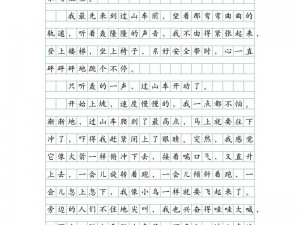 我最先来到过山车前，望着那弯弯曲曲的
轨道，听着轰隆隆的声音，我不由得紧张起来，
登上楼梯，坐上椅子，系好安全带时，心一直
砰砰砰地跳个不停。
只听轰的一声，过山车开动了。
开始上坡，速度慢慢的，我一点都不怕。
渐渐地，过山车爬到了最高点，马上就要往下
冲了，吓得我赶紧闭上了眼睛。突然，我感觉
它像火箭一样俯冲下去，接着喘口气，又直升
上去，一会儿旋转着，一会儿倾斜着跑，一
会儿忽上忽下，我像小鸟一样就要飞起来了。
旁边的人们不住地尖叫，我也兴奋得哇哇大喊，